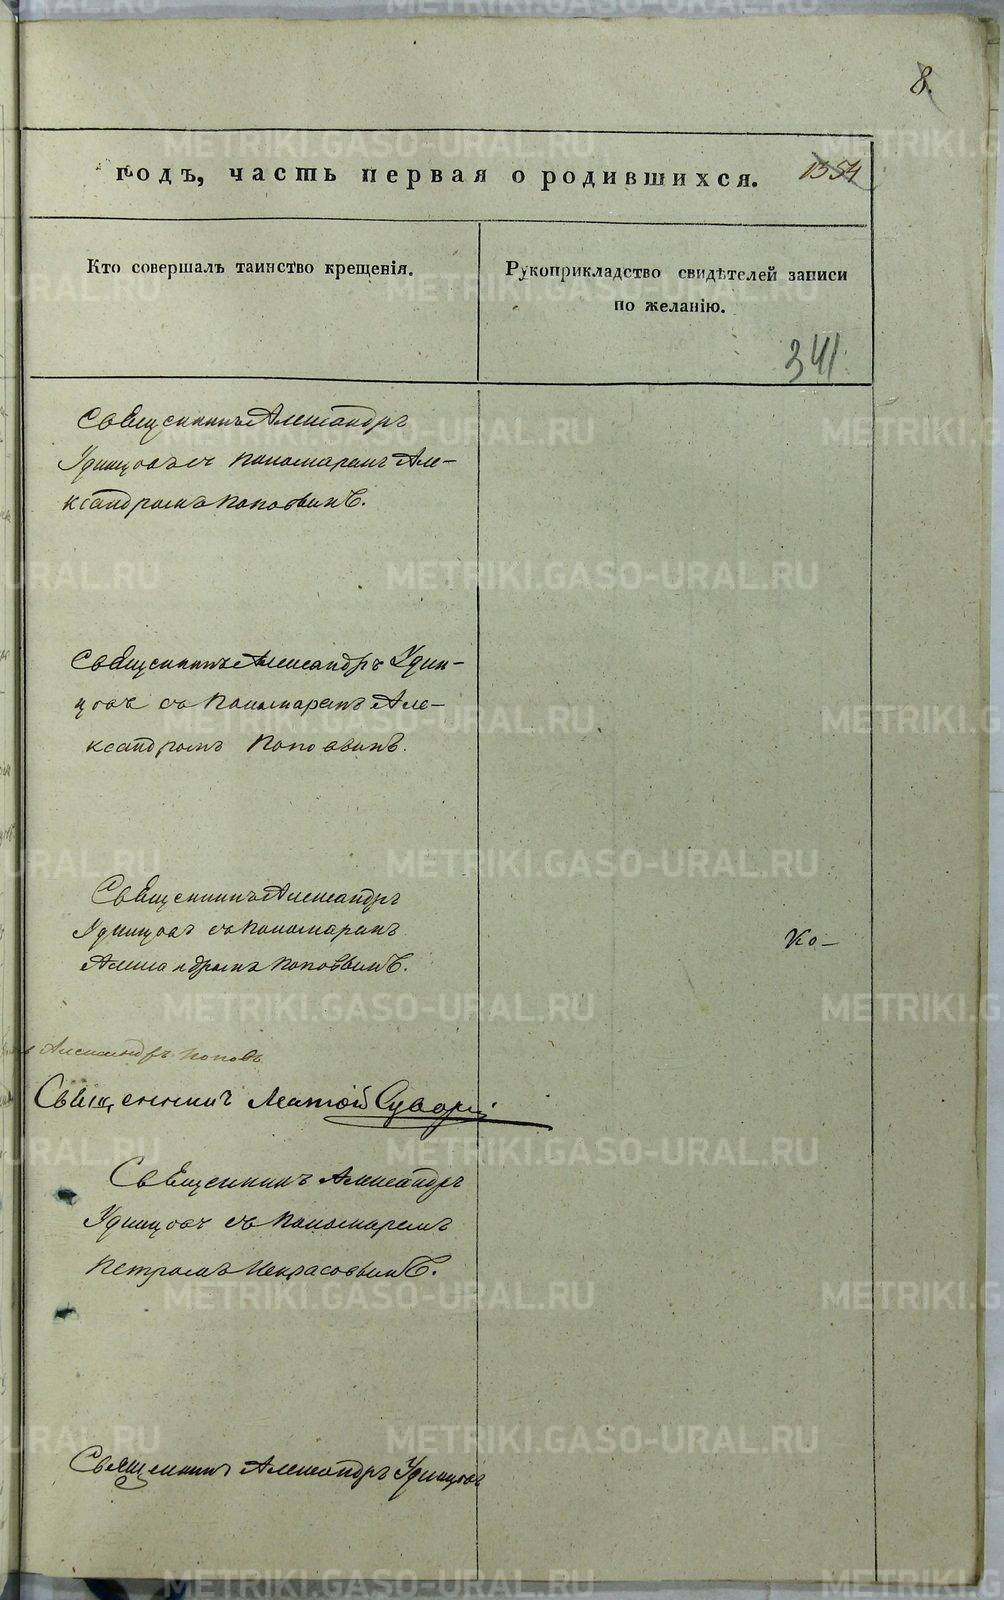 8.
годъ, часть первая о родившихся. 1354
Кто совершалъ таинство крещенія.
Рукоприкладство свидѣтелей записи
по желанію.
341.
Священникъ Александръ
Удинцовъ съ пономаремъ Але-
ксандромъ Поповымъ.
Священникъ Александръ Удин-
цовъ съ пономаремъ Але-
ксандромъ Поповымъ.
Священникъ Александръ
Удинцовъ съ пономаремъ
Александромъ Поповымъ.
Ко-
Александръ Поповъ
Священникъ
Священникъ Александръ
Удинцовъ съ пономаремъ
Петромъ Некрасовымъ.
Священникъ Александръ Удинцовъ
METRIKI.GASO-URAL.RU